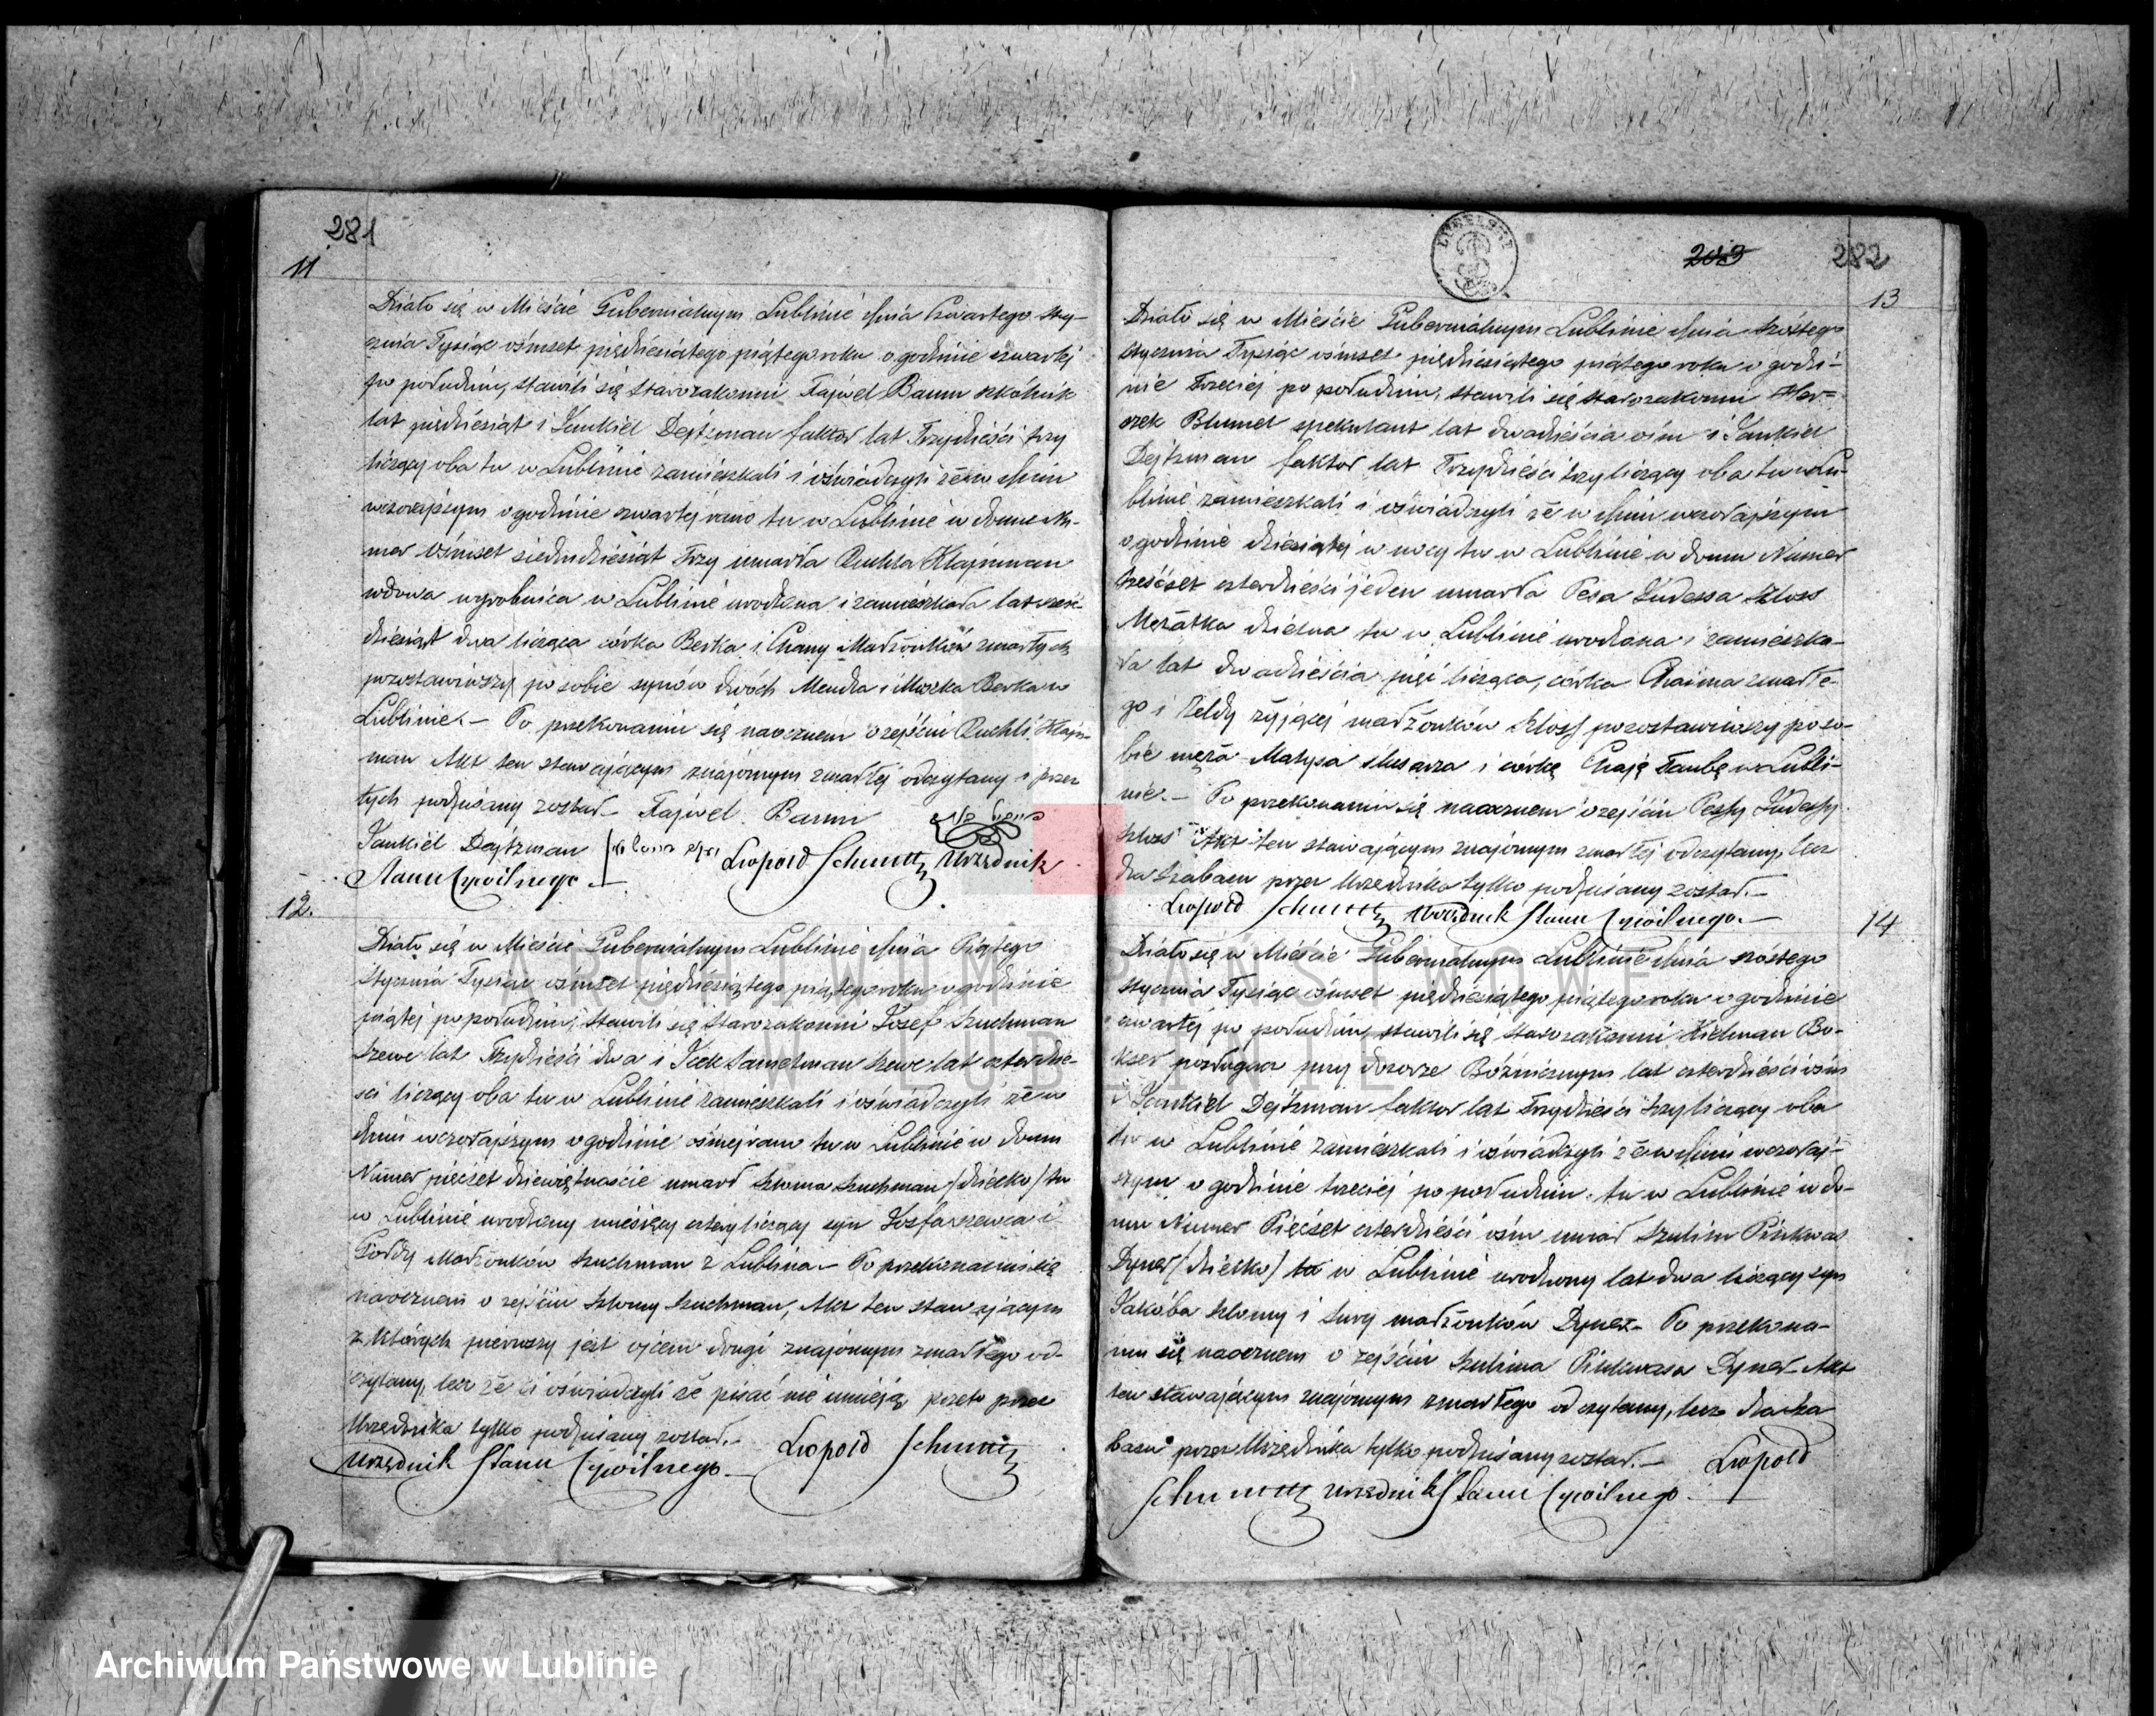 281
11
Działo się w Mieście Gubernialnym Lublinie dnia Czwartego sty-
cznia Tysiąc ośmset pięćdziesiątego piątego roku o godzinie czwartej
po południu, stawili się starozakonni Fajwel Baum szkólnik
lat pięćdziesiąt i Jankiel Dejtzman faktor lat Trzydzieści trzy
liczący oba tu w Lublinie zamieszkali i oświadczyli że w dniu
wczorajszym o godzinie czwartej rano tu w Lublinie w domu Nu-
mer Ośmset siedmdziesiąt Trzy umarła Ruchla Klajnman
wdowa wyrobnica w Lublinie urodzona i zamieszkała lat sześć-
dziesiąt dwa licząca córka Berka i Chany Małżonków zmarłych
pozostawiwszy po sobie synów dwóch Mendla i Moszka Berka w
Lublinie.— Po przekonaniu się naocznem o zejściu Ruchli Klajn-
man Akt ten stawającym znajomym zmarłej odczytany i przez
tych podpisany został.— Fajwel Baum
Jankiel Dejtzman Leopold Schmitt Urzędnik
Stanu Cywilnego.—
12.
Działo się w Mieście Gubernialnym Lublinie dnia Piątego
Stycznia Tysiąc ośmset pięćdziesiątego piątego roku o godzinie
piątej po południu, stawili się starozakonni Josef Szuchman
szewc lat Trzydzieści dwa i Icek Sametman szewc lat czterdzie-
ści liczący oba tu w Lublinie zamieszkali i oświadczyli że w
dniu wczorajszym o godzinie ósmej rano tu w Lublinie w domu
Numer pięćset dziewiętnaście umarł Szloma Szuchman /dziecko/ tu
w Lublinie urodzony miesięcy cztery liczący syn Josfa szewca i
Gołdy Małżonków Szuchman z Lublina.— Po przekonaniu się
naocznem o zejściu Szlomy Szuchman, Akt ten stawającym
z których pierwszy jest ojcem drugi znajomym zmarłego od-
czytany, lecz że ci oświadczyli że pisać nie umieją przeto przez
Urzędnika tylko podpisany został.— Leopold Schmitt
Urzędnik Stanu Cywilnego.—
LUBELSKI
203 282
13
Działo się w Mieście Gubernialnym Lublinie dnia szóstego
Stycznia Tysiąc ośmset pięćdziesiątego piątego roku o godzi-
nie Trzeciej po południu, stawili się starozakonni Her-
szek Blumel spekulant lat dwadzieścia ośm i Jankiel
Dejtzman faktor lat Trzydzieści trzy liczący oba tu w Lu-
blinie zamieszkali i oświadczyli że w dniu wczorajszym
o godzinie dziesiątej w nocy tu w Lublinie w domu Numer
sześćset czterdzieści jeden umarła Pesa Judessa Szloss
Mężatka dzietna tu w Lublinie urodzona i zamieszka-
ła lat dwadzieścia pięć licząca, córka Chaima zmarłe-
go i Zeldy żyjącej małżonków Szloss pozostawiwszy po so-
bie męża Matysa ślusarza i córkę Chaję Taubę w Lubli-
nie.— Po przekonaniu się naocznem o zejściu Pessy Judessy
Szloss Akt ten stawającym znajomym zmarłej odczytany, lecz
dla szabasu przez Urzędnika tylko podpisany został.—
Leopold Schmitt Urzędnik Stanu Cywilnego.—
14
Działo się w Mieście Gubernialnym Lublinie dnia szóstego
Stycznia Tysiąc ośmset pięćdziesiątego piątego roku o godzinie
czwartej po południu, stawili się starozakonni Kielman Bo-
kser posługacz przy dozorze Bóżniczym lat czterdzieści ośm
i Jankiel Dejtzman faktor lat Trzydzieści trzy liczący oba
tu w Lublinie zamieszkali i oświadczyli że w dniu wczoraj-
szym o godzinie trzeciej po południu tu w Lublinie w do-
mu Numer Pięćset czterdzieści ośm umarł Szulim Pinkwas
Dyner /dziecko/ tu w Lublinie urodzony lat dwa liczący syn
Jakóba Szlomy i Sury małżonków Dyner.— Po przekona-
niu się naocznem o zejściu Szulima Pinkwasa Dyner Akt
ten stawającym znajomym zmarłego odczytany, lecz dla sza-
basu przez Urzędnika tylko podpisany został.— Leopold
Schmitt Urzędnik Stanu Cywilnego.—
ARCHIWUM PAŃSTWOWE
W LUBLINIE
Archiwum Państwowe w Lublinie